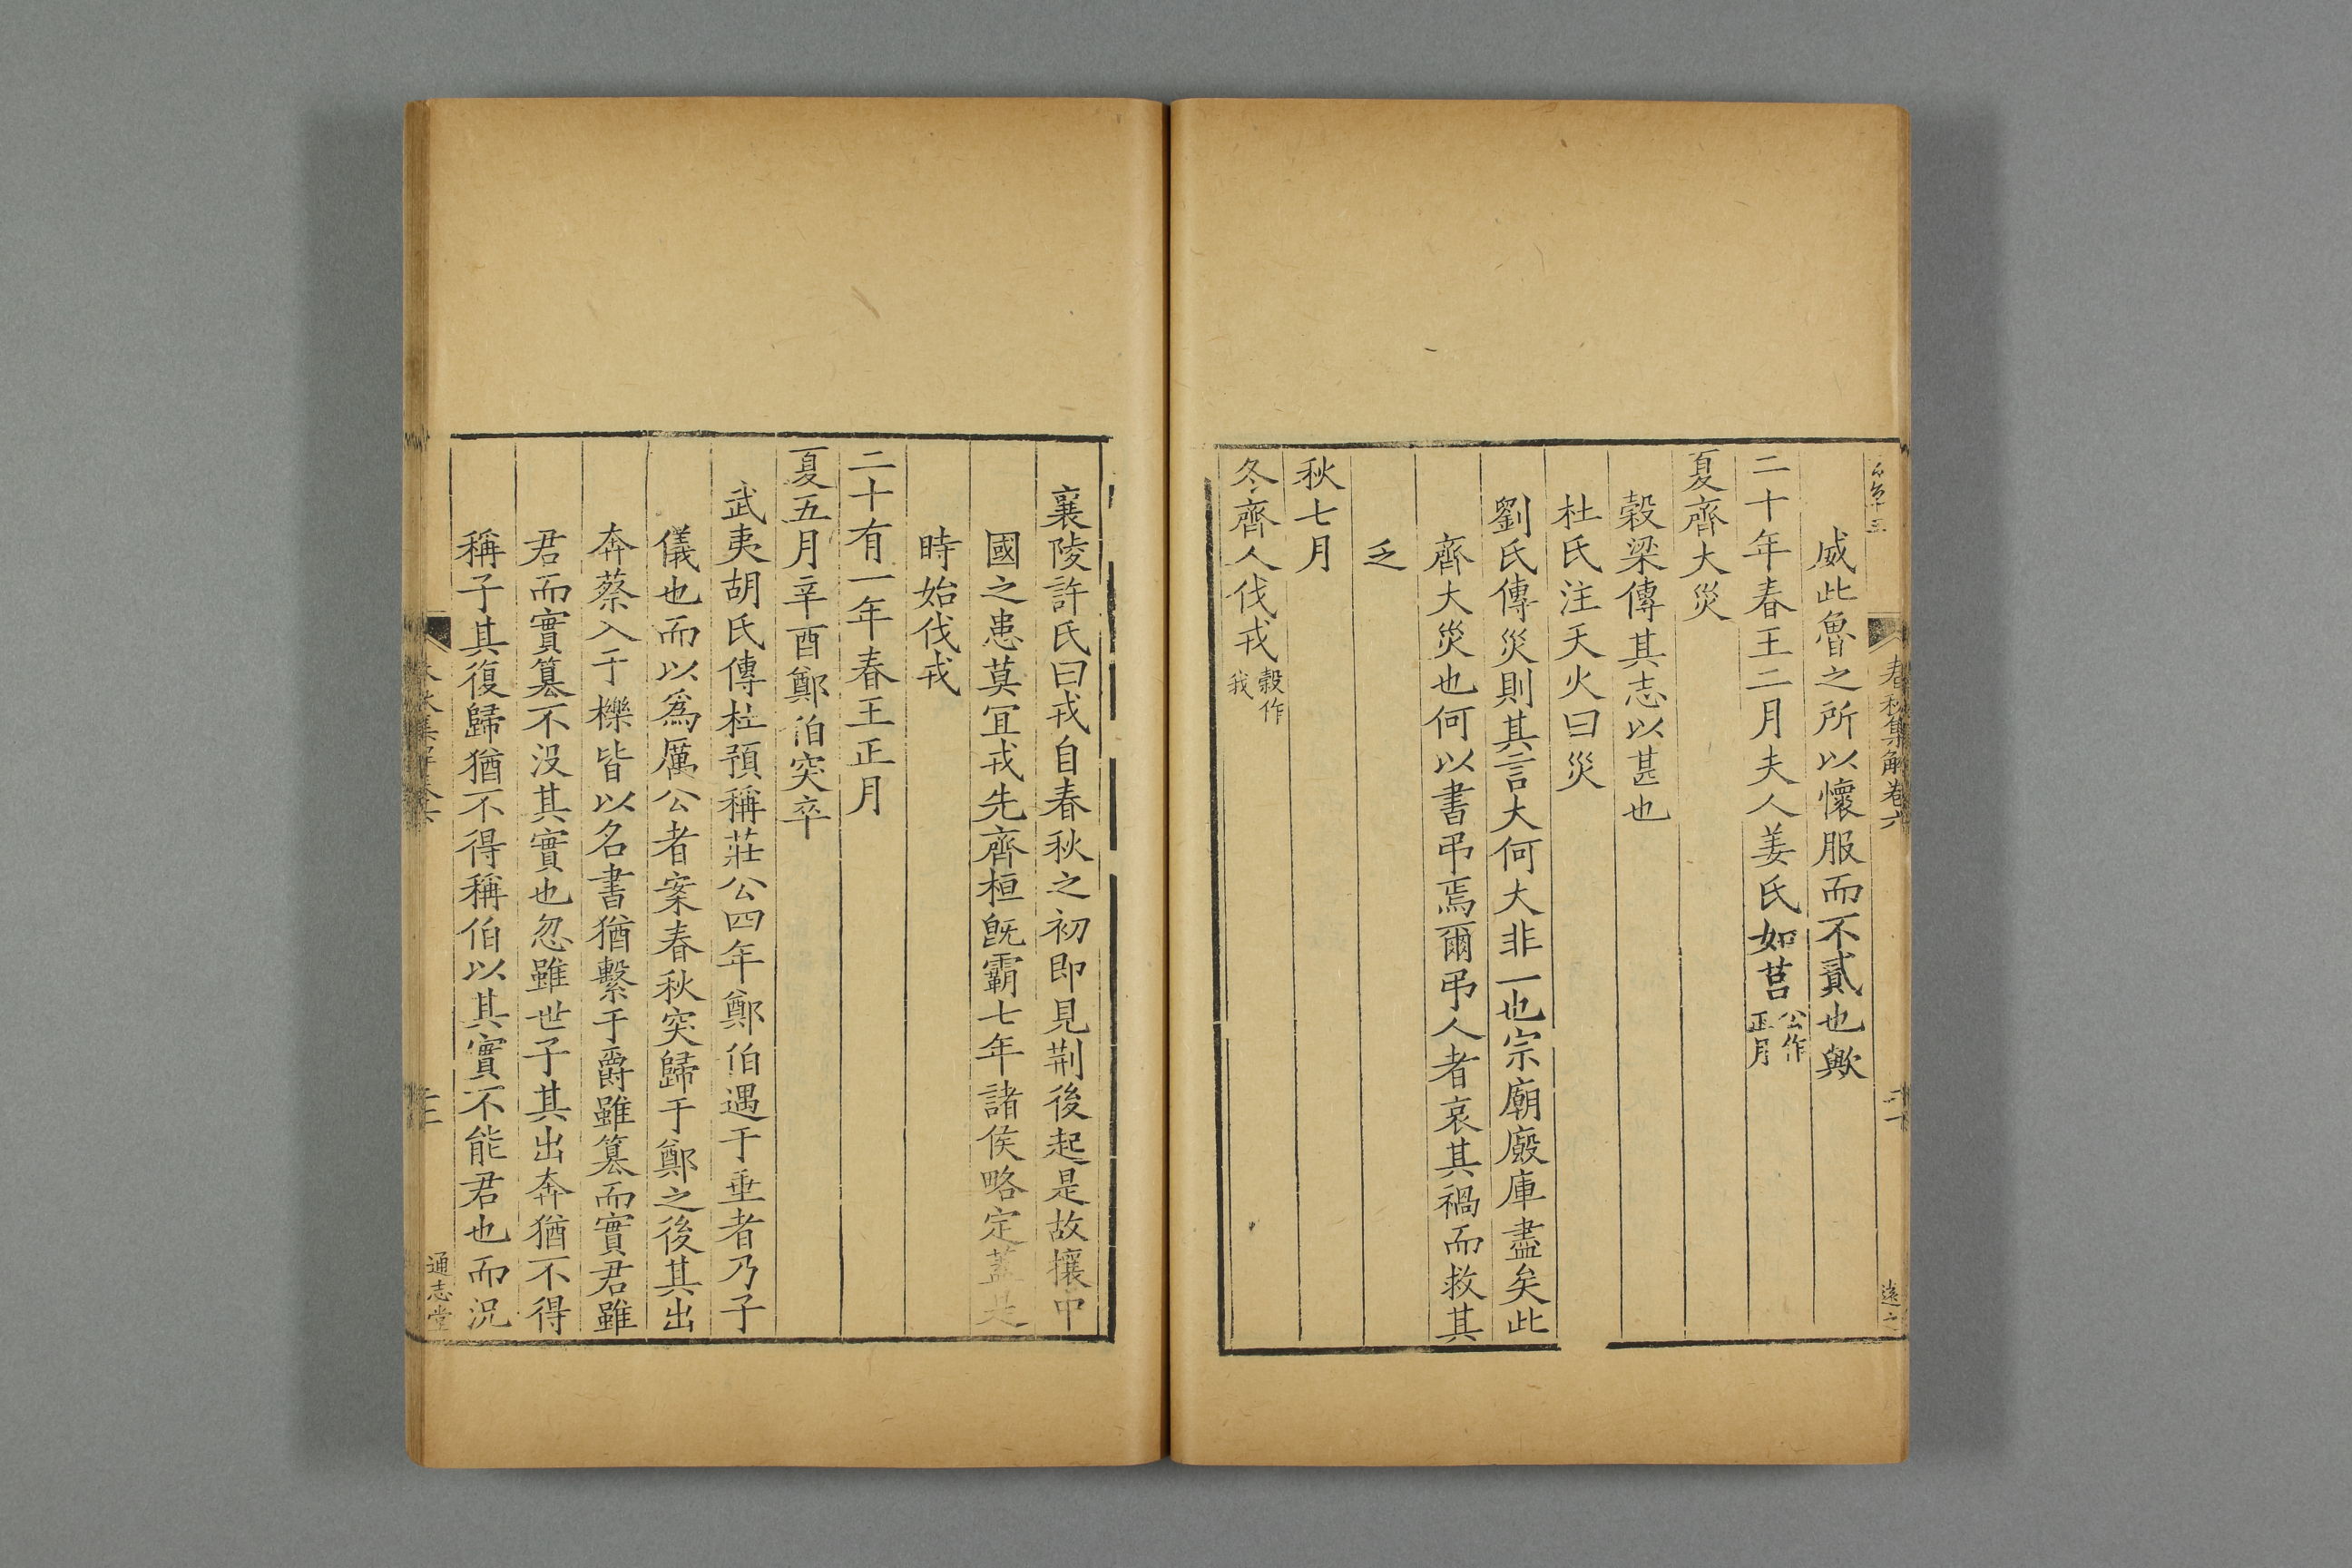 春秋集解卷六
威此魯之所以懷服而不貳也歟
二十年春王二月夫人姜氏如莒公作正月
夏齊大災
穀梁傳其志以甚也
杜氏注天火曰災
劉氏傳災則其言大何大非一也宗廟廄庫盡矣此
齊大災也何以書弔焉爾弔人者哀其禍而救其
乏
秋七月
冬齊人伐戎穀作我
襄陵許氏曰戎自春秋之初即見荆後起是故攘中
國之患莫冝戎先齊桓旣霸七年諸侯略定蓋是
時始伐戎
二十有一年春王正月
夏五月辛酉鄭伯突卒
武夷胡氏傳杜預稱莊公四年鄭伯遇于垂者乃子
儀也而以爲厲公者案春秋突歸于鄭之後其出
奔蔡入于櫟皆以名書猶繫于爵雖篡而實君雖
君而實篡不没其實也忽雖世子其出奔猶不得
稱子其復歸猶不得稱伯以其實不能君也而況
通志堂